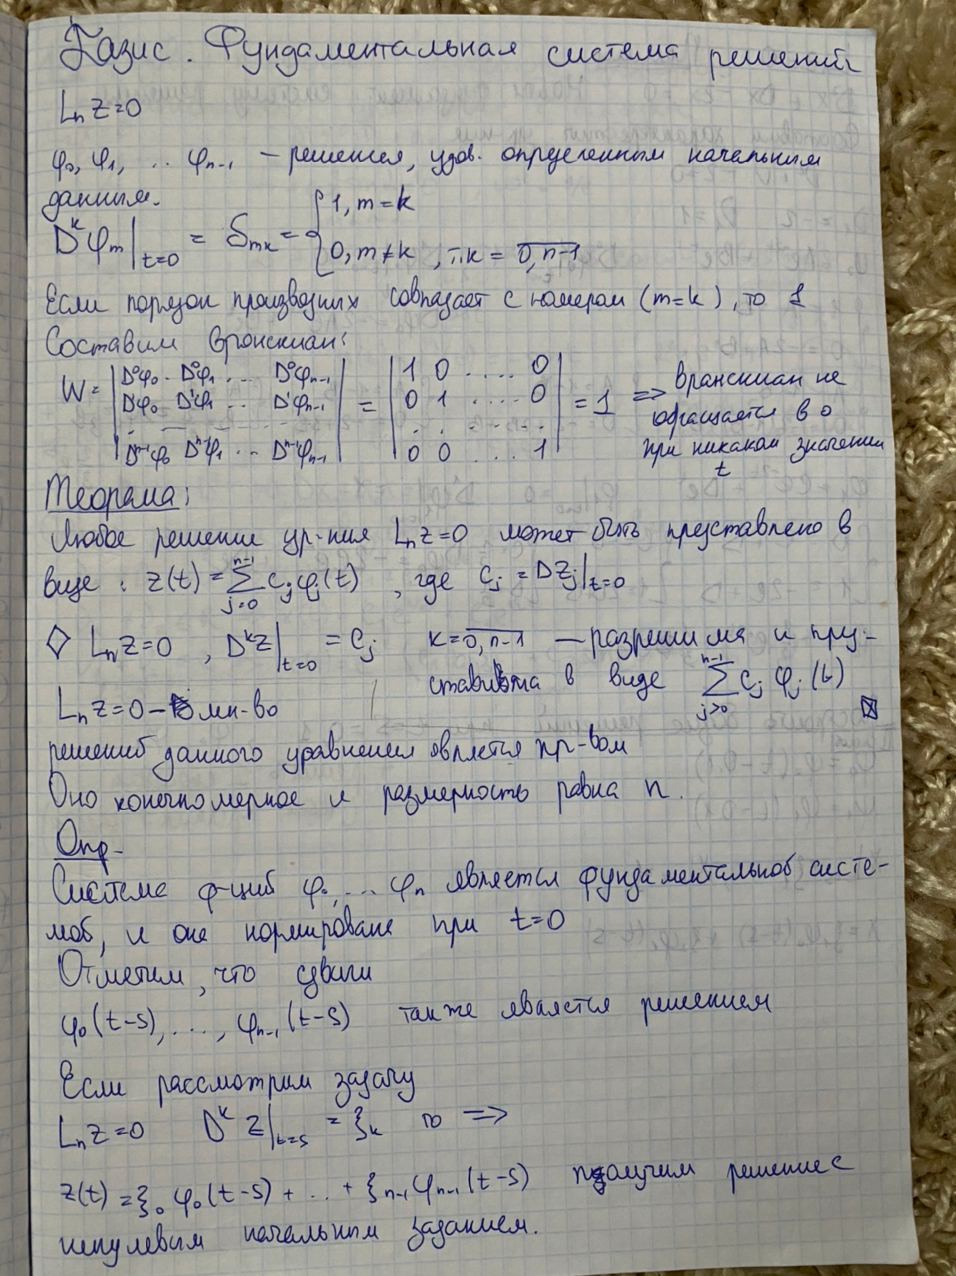 Базис. Фундаментальная система решений
Lₙz=0
φ₀, φ₁, .. φₙ₋₁ – решения, удов. определенным начальным
данным.
Dᵏφₘ|ₜ₌₀ = δₘₖ = { 1, m=k
0, m≠k , m k = 0,n-1
Если порядок производных совпадает с номером (m=k), то 1
Составим вронскиан:
W = | D⁰φ₀ .. D⁰φ₁ ... D⁰φₙ₋₁ | = | 1 0 .... 0 | = 1 => вранскиан не
| D¹φ₀ .. D¹φ₁ ... D¹φₙ₋₁ | | 0 1 ..... 0 | обращается в 0
| Dⁿ⁻¹φ₀ Dⁿ⁻¹φ₁ ... Dⁿ⁻¹φₙ₋₁ | | 0 0 ... 1 | при никаком значении
t
Теорема:
Любое решение ур-ния Lₙz=0 может быть представлено в
виде: z(t) = Σⱼ₌₀ⁿ⁻¹ cⱼφⱼ(t) , где cⱼ = Dzⱼ|ₜ₌₀
◇ Lₙz=0 , Dᵏz|ₜ₌₀ = cⱼ k=0,n-1 – разрешимя и пру-
ставима в виде Σⱼ₎₀ⁿ⁻¹ cⱼ φⱼ(t)
Lₙz=0 – мн-во
решений данного уравнения является пр-вом
Оно конечномерное и размерность равна n.
Опр.
Система ф-ций φ₀ ... φₙ является фундаментальной систе-
мой, и она нормирована при t=0
Отметим, что сдвиги
φ₀(t-s), ..., φₙ₋₁(t-s) также является решением
Если рассмотрим задачу
Lₙz=0 Dᵏ z|ₜ₌ₛ = ξₖ то =>
z(t) = ξ₀ φ₀(t-s) + ... + ξₙ₋₁φₙ₋₁(t-s) получим решение с
ненулевым начальным заданием.